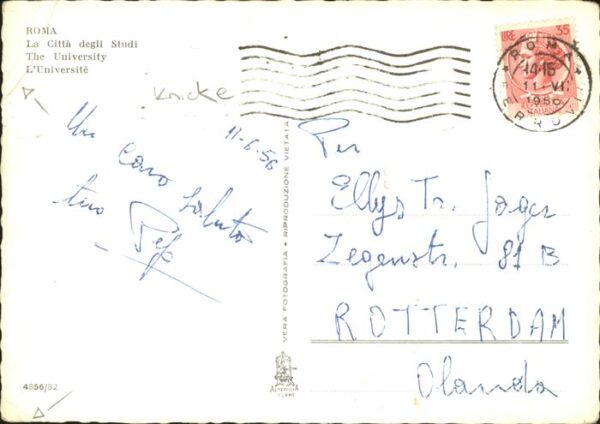 ROMA
La Città degli Studi
The University
L'Université
Knicke
11-6-56
Un
caro saluto
tuo Pep
4856/82
VERA FOTOGRAFIA • RIPRODUZIONE VIETATA
LIRE 35
ROMA
14-15
11 VI
1956
FERROVIA
Per
Ellys Tr. Jager
Zegenstr. 81 B
ROTTERDAM
Olanda